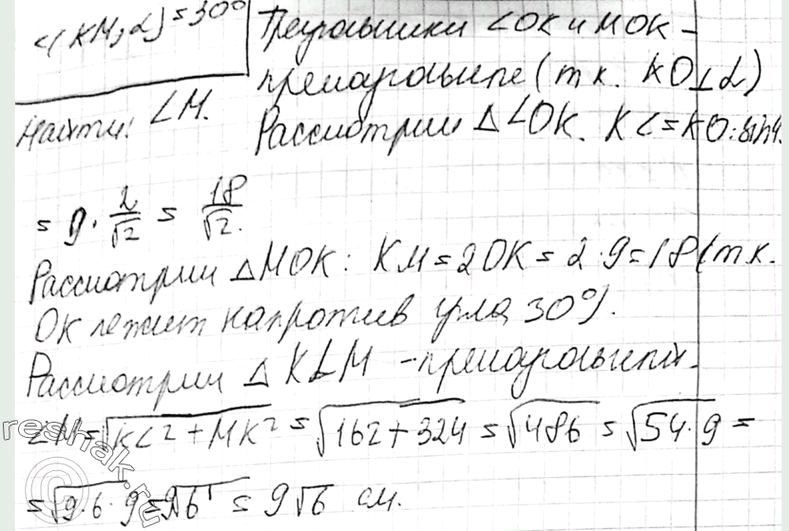 <(KM,α)=30°
Найти: LM.
Треугольники LOK и MOK –
прямоугольные (т.к. KO⊥α)
Рассмотрим Δ LOK. KL = KO:sin4
= 9·2/√2 = 18/√2.
Рассмотрим ΔMOK: KM = 2OK = 2·9=18 (т.к.
OK лежит напротив угла 30°).
Рассмотрим Δ KLM – прямоугольный.
LM=√KL²+MK² = √162+324 = √486 = √54·9 =
=√9·6·9 = 9√6 = 9√6 см.
reshak.ru